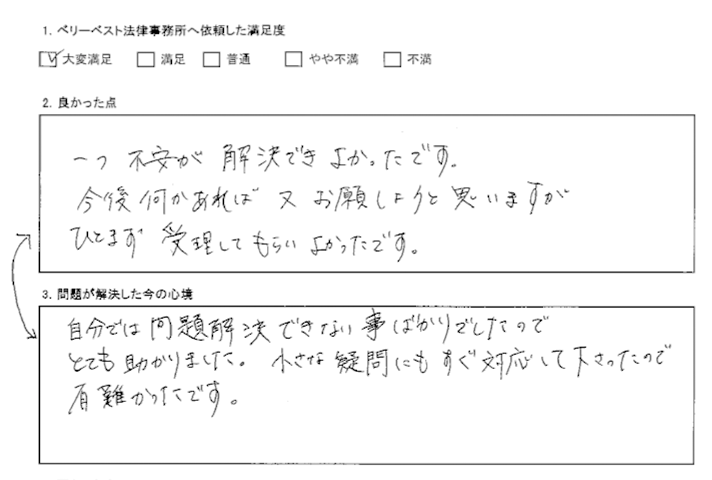 1. ベリーベスト法律事務所へ依頼した満足度
☑大変満足 □満足 □普通 □やや不満 □不満
2. 良かった点
一つ 不安が 解決でき よかったです。
今後 何かあれば 又 お願しようと思いますが
ひとまず 受理してもらい よかったです。
3. 問題が解決した今の心境
自分では 問題解決 できない 事ばかりでしたので
とても 助かりました。 小さな 疑問にも すぐ 対応して下さったので
有難かったです。